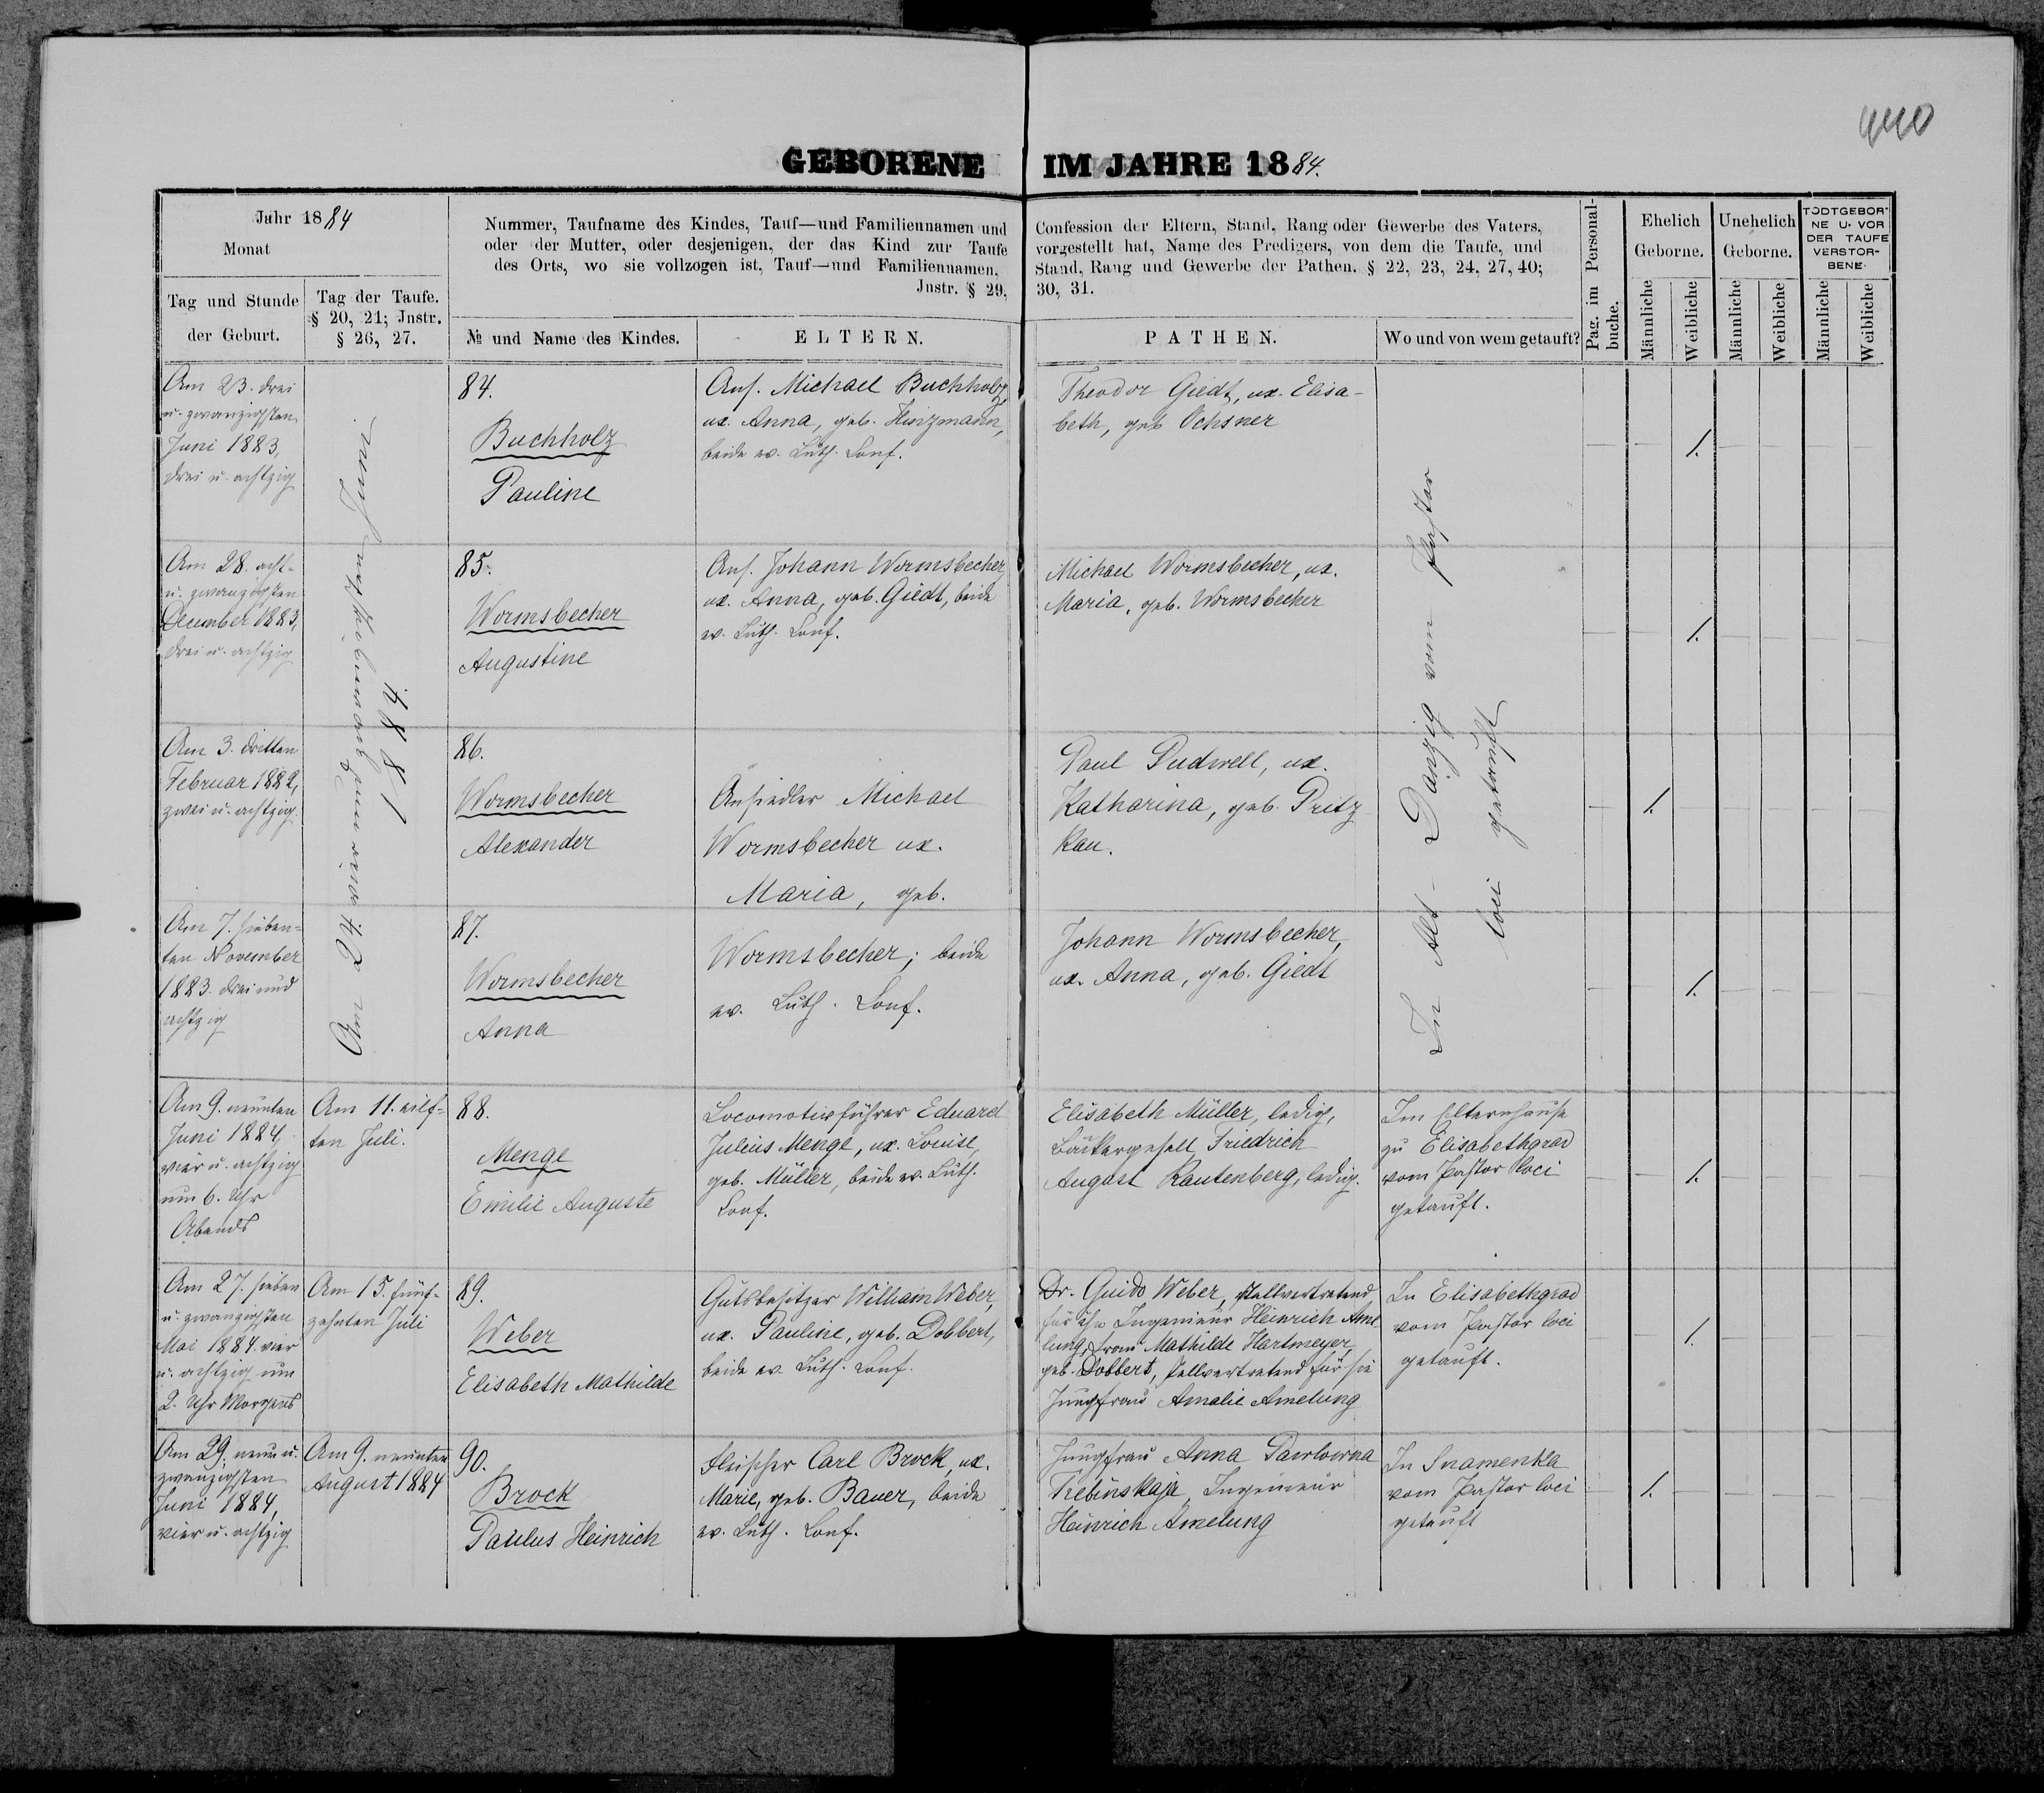 440
GEBORENE IM JAHRE 1884.
Jahr 1884
Monat
Tag und Stunde
der Geburt.
Tag der Taufe.
§ 20, 21; Jnstr.
§ 26, 27.
Nummer, Taufname des Kindes, Tauf—und Familiennamen und
oder der Mutter, oder desjenigen, der das Kind zur Taufe
des Orts, wo sie vollzogen ist, Tauf—und Familiennamen.
Jnstr. § 29.
№ und Name des Kindes.
ELTERN.
Confession der Eltern, Stand, Rang oder Gewerbe des Vaters,
vorgestellt hat, Name des Predigers, von dem die Taufe, und
Stand, Rang und Gewerbe der Pathen. § 22, 23, 24, 27, 40;
30, 31.
PATHEN.
Wo und von wem getauft?
Pag. im Personal-
buche.
Ehelich
Geborne.
Unehelich
Geborne.
TODTGEBOR-
NE U. VOR
DER TAUFE
VERSTOR-
BENE.
Männliche
Weibliche
Männliche
Weibliche
Männliche
Weibliche
Am 23. drei
u. zwanzigsten
Juni 1883,
drei u. achtzig
Am 24 vier und zwanzigsten Juni
1884.
84.
Buchholz
Pauline
Ans. Michael Buchholz,
ux. Anna, geb. Hinzmann,
beide ev. Luth. Conf.
Theodor Giedt, ux. Elisa-
beth, geb Ochsner
In Alt-Danzig vom Pastor
loci getauft
1.
Am 28. acht-
u. zwanzigsten
December 1883,
drei u. achtzig
85.
Wormsbecher
Augustine
Ans. Johann Wormsbecher,
ux. Anna, geb. Giedt, beide
ev. Luth. Conf.
Michael Wormsbecher, ux.
Maria, geb. Wormsbecher
1.
Am 3. dritten
Februar 1882,
zwei u. achtzig.
86.
Wormsbecher
Alexander
Ansiedler Michael
Wormsbecher ux.
Maria, geb.
Wormsbecher; beide
ev. Luth. Conf.
Paul Pudwell, ux.
Katharina, geb. Pritz
kau.
1.
Am 7. sieben-
ten November
1883. drei und
achtzig
87.
Wormsbecher
Anna
Johann Wormsbecher,
ux. Anna, geb. Giedt
1.
Am 9. neunten
Juni 1884,
vier u. achtzig
um 6. Uhr
Abends
Am 11. eilf-
ten Juli.
88.
Menge
Emilie Auguste
Locomotivführer Eduard
Julius Menge, ux. Louise,
geb. Müller, beide ev. Luth.
Conf.
Elisabeth Müller, ledig,
Bäckergesell Friedrich
August Rautenberg, ledig.
Im Elternhause
zu Elisabethgrad
vom Pastor loci
getauft.
1.
Am 27. sieben
u. zwanzigsten
Mai 1884. vier
u. achtzig um
2. Uhr Morgens
Am 15. fünf-
zehnten Juli
89.
Weber
Elisabeth Mathilde
Gutsbesitzer William Weber,
ux. Pauline, geb. Dobbert,
beide ev. Luth. Conf.
Dr. Guido Weber, stellvertretend
für ihn Ingenieur Heinrich Ame-
lung, Frau Mathilde Hartmeyer,
geb. Dobbert, stellvertretend für sie
Jungfrau Amalie Amelung
In Elisabethgrad
vom Pastor loci
getauft.
1.
Am 29. neun u.
zwanzigsten
Juni 1884,
vier u. achtzig
Am 9. neunten
August 1884
90.
Brock
Paulus Heinrich
Fleischer Carl Brock, ux.
Marie, geb. Bauer, beide
ev. Luth. Conf.
Jungfrau Anna Pawlowna
Trebinskaja, Ingenieur
Heinrich Amelung
In Snamenka
vom Pastor loci
getauft
1.